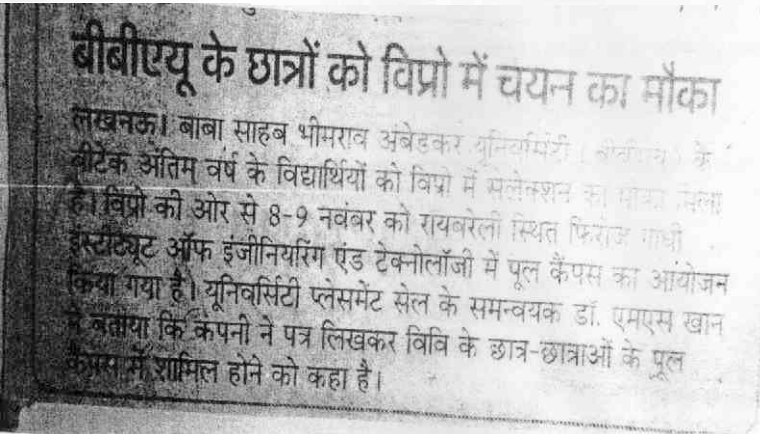 बीबीएयू के छात्रों को विप्रो में चयन का मौका
लखनऊ। बाबा साहब भीमराव अंबेडकर यूनिवर्सिटी (बीबीएयू) के
बीटेक अंतिम वर्ष के विद्यार्थियों को विप्रो में सेलेक्शन का मौका मिला
है। विप्रो की ओर से 8-9 नवंबर को रायबरेली स्थित फिरोज गांधी
इंस्टीट्यूट ऑफ इंजीनियरिंग एंड टेक्नोलॉजी में पूल कैंपस का आयोजन
किया गया है। यूनिवर्सिटी प्लेसमेंट सेल के समन्वयक डॉ. एमएस खान
ने बताया कि कंपनी ने पत्र लिखकर विवि के छात्र-छात्राओं के पूल
कैंपस में शामिल होने को कहा है।